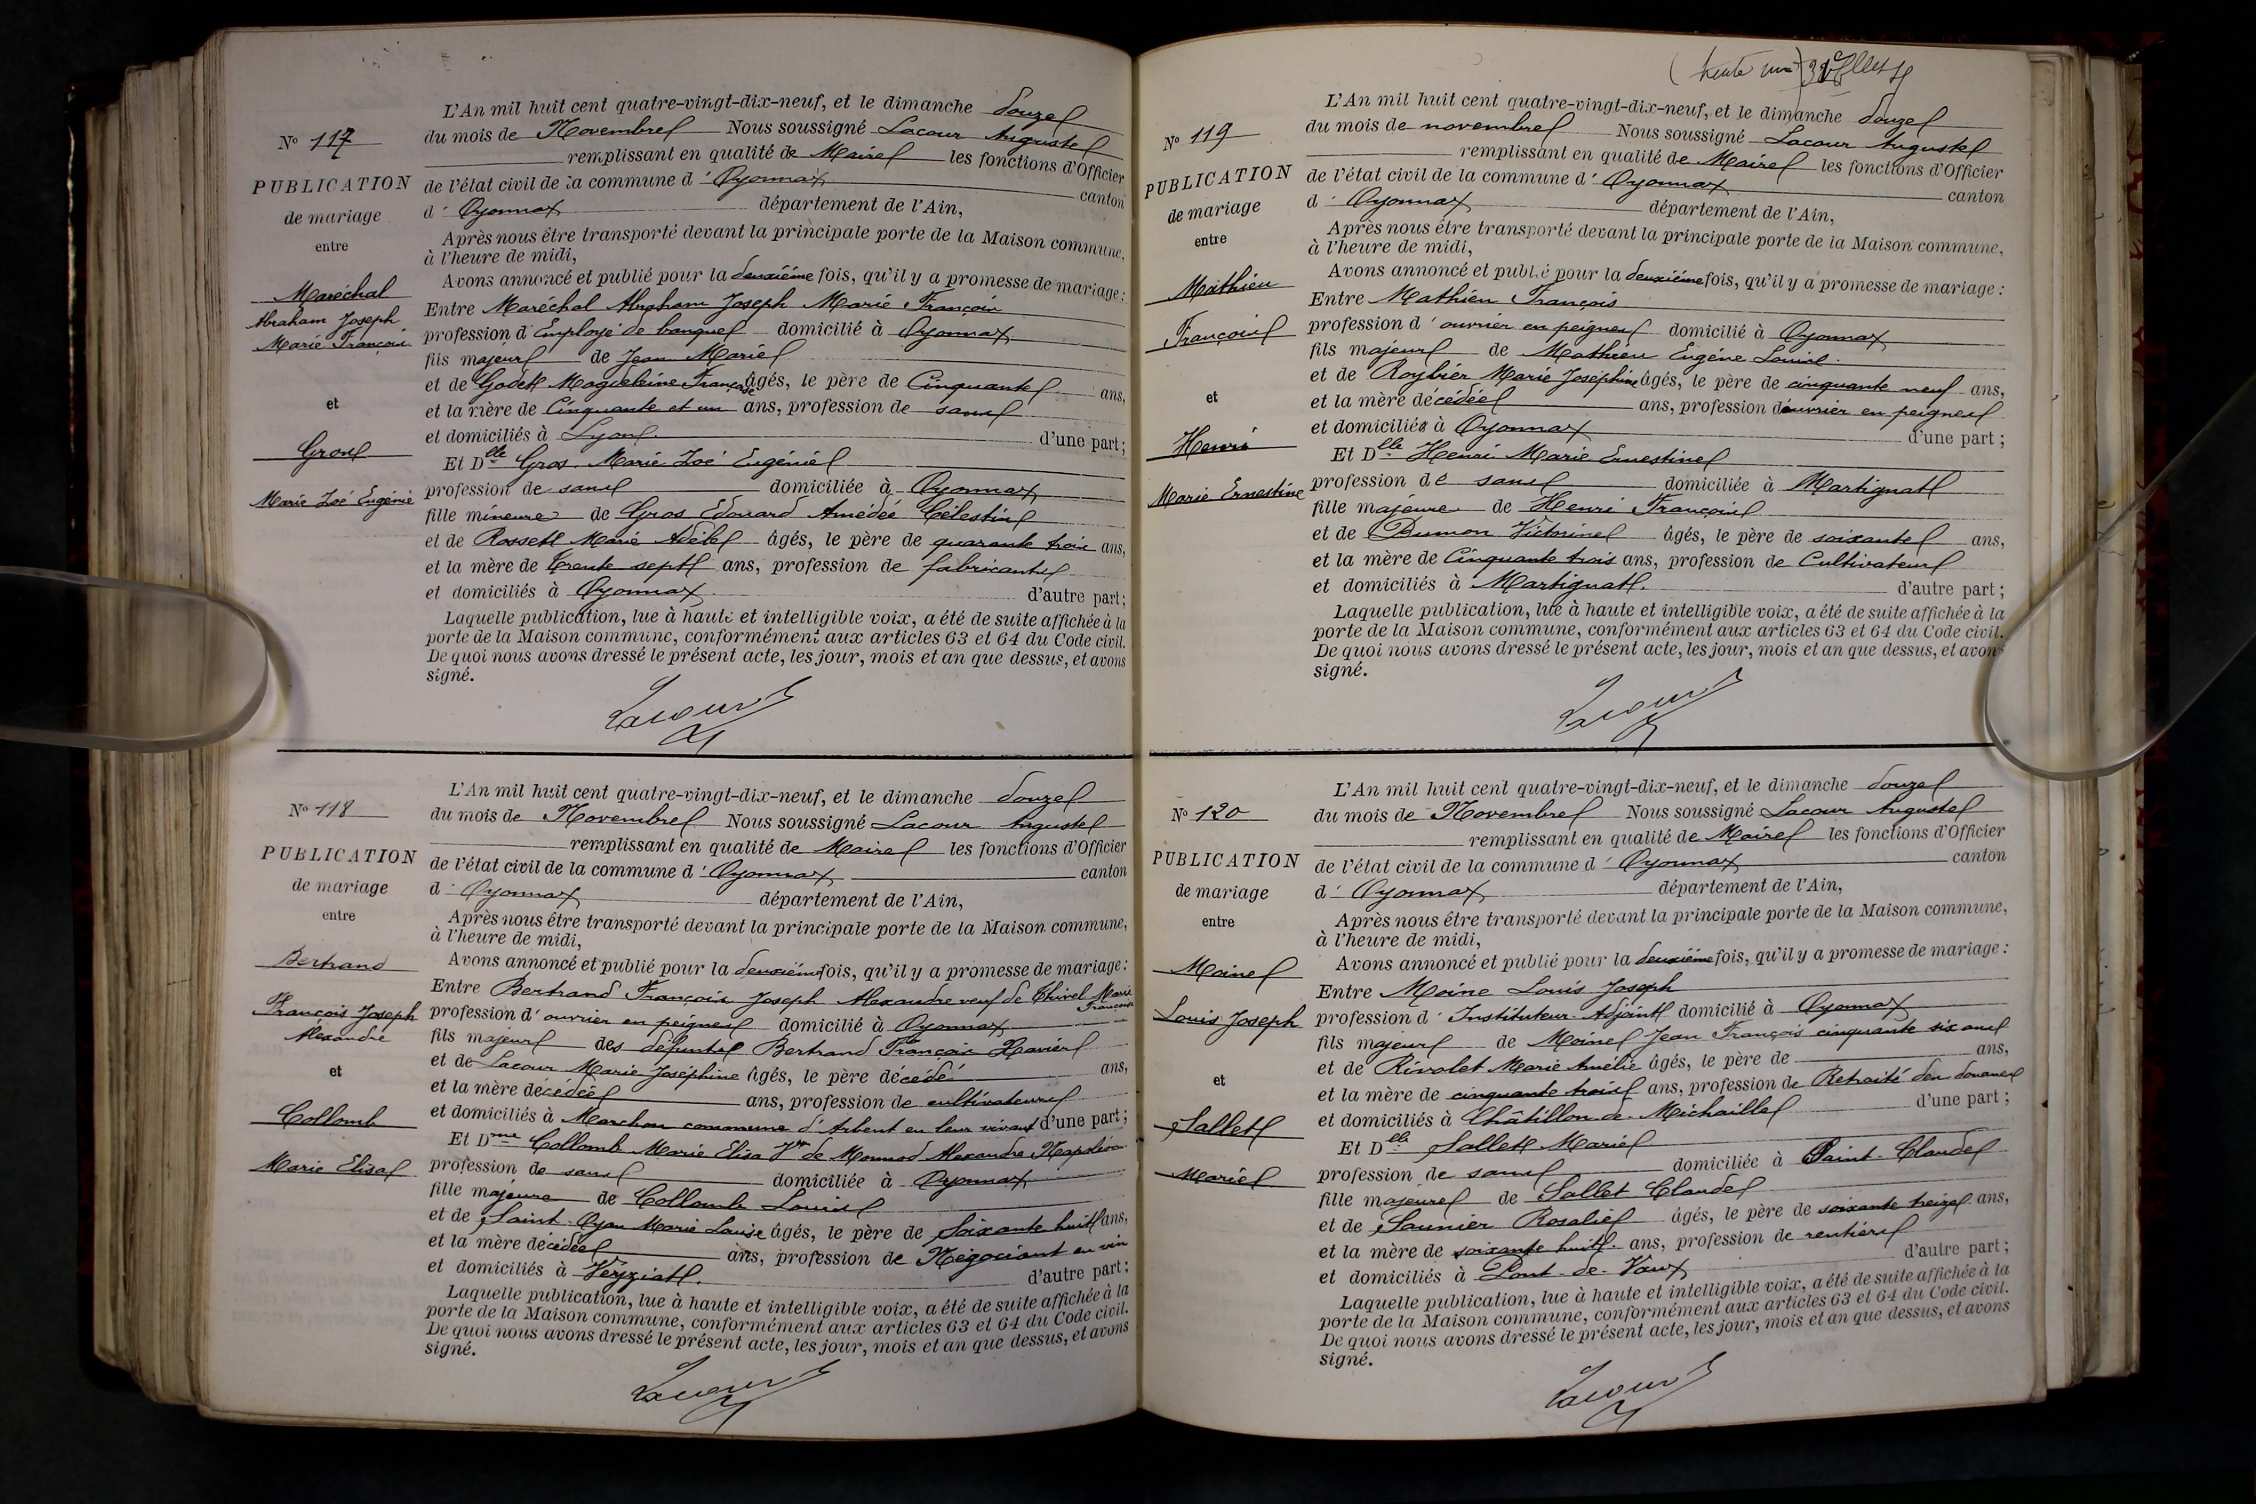 N° 117
PUBLICATION
de mariage
entre
Maréchal
Abraham Joseph
Marie François
et
Gros
Marie Zoé Eugénie
L'An mil huit cent quatre-vingt-dix-neuf, et le dimanche douze
du mois de Novembre Nous soussigné Lacour Auguste
remplissant en qualité de Maire les fonctions d'Officier
de l'état civil de la commune d' Oyonnax canton
d' Oyonnax département de l'Ain,
Après nous être transporté devant la principale porte de la Maison commune,
à l'heure de midi,
Avons annoncé et publié pour la deuxième fois, qu'il y a promesse de mariage :
Entre Maréchal Abraham Joseph Marie François
profession d' Employé de banque domicilié à Oyonnax
fils majeur de Jean Marie
et de Godet Magdeleine Françoise âgés, le père de Cinquante ans,
et la mère de Cinquante et un ans, profession de sans
et domiciliés à Lyon. d'une part ;
Et Dlle Gros Marie Zoé Eugénie
profession de sans domiciliée à Oyonnax
fille mineure de Gros Edouard Amédée Célestin
et de Rosset Marie Adèle âgés, le père de quarante trois ans,
et la mère de trente sept ans, profession de fabricants
et domiciliés à Oyonnax d'autre part ;
Laquelle publication, lue à haute et intelligible voix, a été de suite affichée à la
porte de la Maison commune, conformément aux articles 63 et 64 du Code civil.
De quoi nous avons dressé le présent acte, les jour, mois et an que dessus, et avons
signé.
Lacour
N° 118
PUBLICATION
de mariage
entre
Bertrand
François Joseph
Alexandre
et
Collomb
Marie Elisa
L'An mil huit cent quatre-vingt-dix-neuf, et le dimanche douze
du mois de Novembre Nous soussigné Lacour Auguste
remplissant en qualité de Maire les fonctions d'Officier
de l'état civil de la commune d' Oyonnax canton
d' Oyonnax département de l'Ain,
Après nous être transporté devant la principale porte de la Maison commune,
à l'heure de midi,
Avons annoncé et publié pour la deuxième fois, qu'il y a promesse de mariage :
Entre Bertrand François Joseph Alexandre veuf de Thivel Marie Françoise
profession d' ouvrier en peignes domicilié à Oyonnax
fils majeur des défunts Bertrand François Xavier
et de Lacour Marie Joséphine âgés, le père décédé ans,
et la mère décédée ans, profession de cultivateurs
et domiciliés à Marchon commune d'Arbent en leur vivant d'une part ;
Et Dme Collomb Marie Elisa Vve de Monnod Alexandre Napoléon
profession de sans domiciliée à Oyonnax
fille majeure de Collomb Louis
et de Saint-Oyan Marie Louise âgés, le père de Soixante huit ans,
et la mère décédée ans, profession de Négociant en vin
et domiciliés à Veyziat. d'autre part ;
Laquelle publication, lue à haute et intelligible voix, a été de suite affichée à la
porte de la Maison commune, conformément aux articles 63 et 64 du Code civil.
De quoi nous avons dressé le présent acte, les jour, mois et an que dessus, et avons
signé.
Lacour
(trente un) 31
N° 119
PUBLICATION
de mariage
entre
Mathieu
François
et
Henri
Marie Ernestine
L'An mil huit cent quatre-vingt-dix-neuf, et le dimanche douze
du mois de novembre Nous soussigné Lacour Auguste
remplissant en qualité de Maire les fonctions d'Officier
de l'état civil de la commune d' Oyonnax canton
d' Oyonnax département de l'Ain,
Après nous être transporté devant la principale porte de la Maison commune,
à l'heure de midi,
Avons annoncé et publié pour la deuxième fois, qu'il y a promesse de mariage :
Entre Mathieu François
profession d' ouvrier en peignes domicilié à Oyonnax
fils majeur de Mathieu Eugène Louis
et de Roybier Marie Joséphine âgés, le père de cinquante neuf ans,
et la mère décédée ans, profession d'ouvrier en peignes
et domiciliés à Oyonnax d'une part ;
Et Dlle Henri Marie Ernestine
profession de sans domiciliée à Martignat
fille majeure de Henri François
et de Dumon Victorine âgés, le père de soixante ans,
et la mère de Cinquante trois ans, profession de Cultivateurs
et domiciliés à Martignat. d'autre part ;
Laquelle publication, lue à haute et intelligible voix, a été de suite affichée à la
porte de la Maison commune, conformément aux articles 63 et 64 du Code civil.
De quoi nous avons dressé le présent acte, les jour, mois et an que dessus, et avons
signé.
Lacour
N° 120
PUBLICATION
de mariage
entre
Moine
Louis Joseph
et
Sallet
Marie
L'An mil huit cent quatre-vingt-dix-neuf, et le dimanche douze
du mois de Novembre Nous soussigné Lacour Auguste
remplissant en qualité de Maire les fonctions d'Officier
de l'état civil de la commune d' Oyonnax canton
d' Oyonnax département de l'Ain,
Après nous être transporté devant la principale porte de la Maison commune,
à l'heure de midi,
Avons annoncé et publié pour la deuxième fois, qu'il y a promesse de mariage :
Entre Moine Louis Joseph
profession d' Instituteur-Adjoint domicilié à Oyonnax
fils majeur de Moine Jean François cinquante six ans
et de Rivolet Marie Amélie âgés, le père de ans,
et la mère de cinquante trois ans, profession de Retraité des douanes
et domiciliés à Châtillon-de-Michaille d'une part ;
Et Dlle Sallet Marie
profession de sans domiciliée à Saint-Claude
fille majeure de Sallet Claude
et de Saunier Rosalie âgés, le père de soixante treize ans,
et la mère de soixante huit ans, profession de rentiers
et domiciliés à Pont-de-Vaux d'autre part ;
Laquelle publication, lue à haute et intelligible voix, a été de suite affichée à la
porte de la Maison commune, conformément aux articles 63 et 64 du Code civil.
De quoi nous avons dressé le présent acte, les jour, mois et an que dessus, et avons
signé.
Lacour